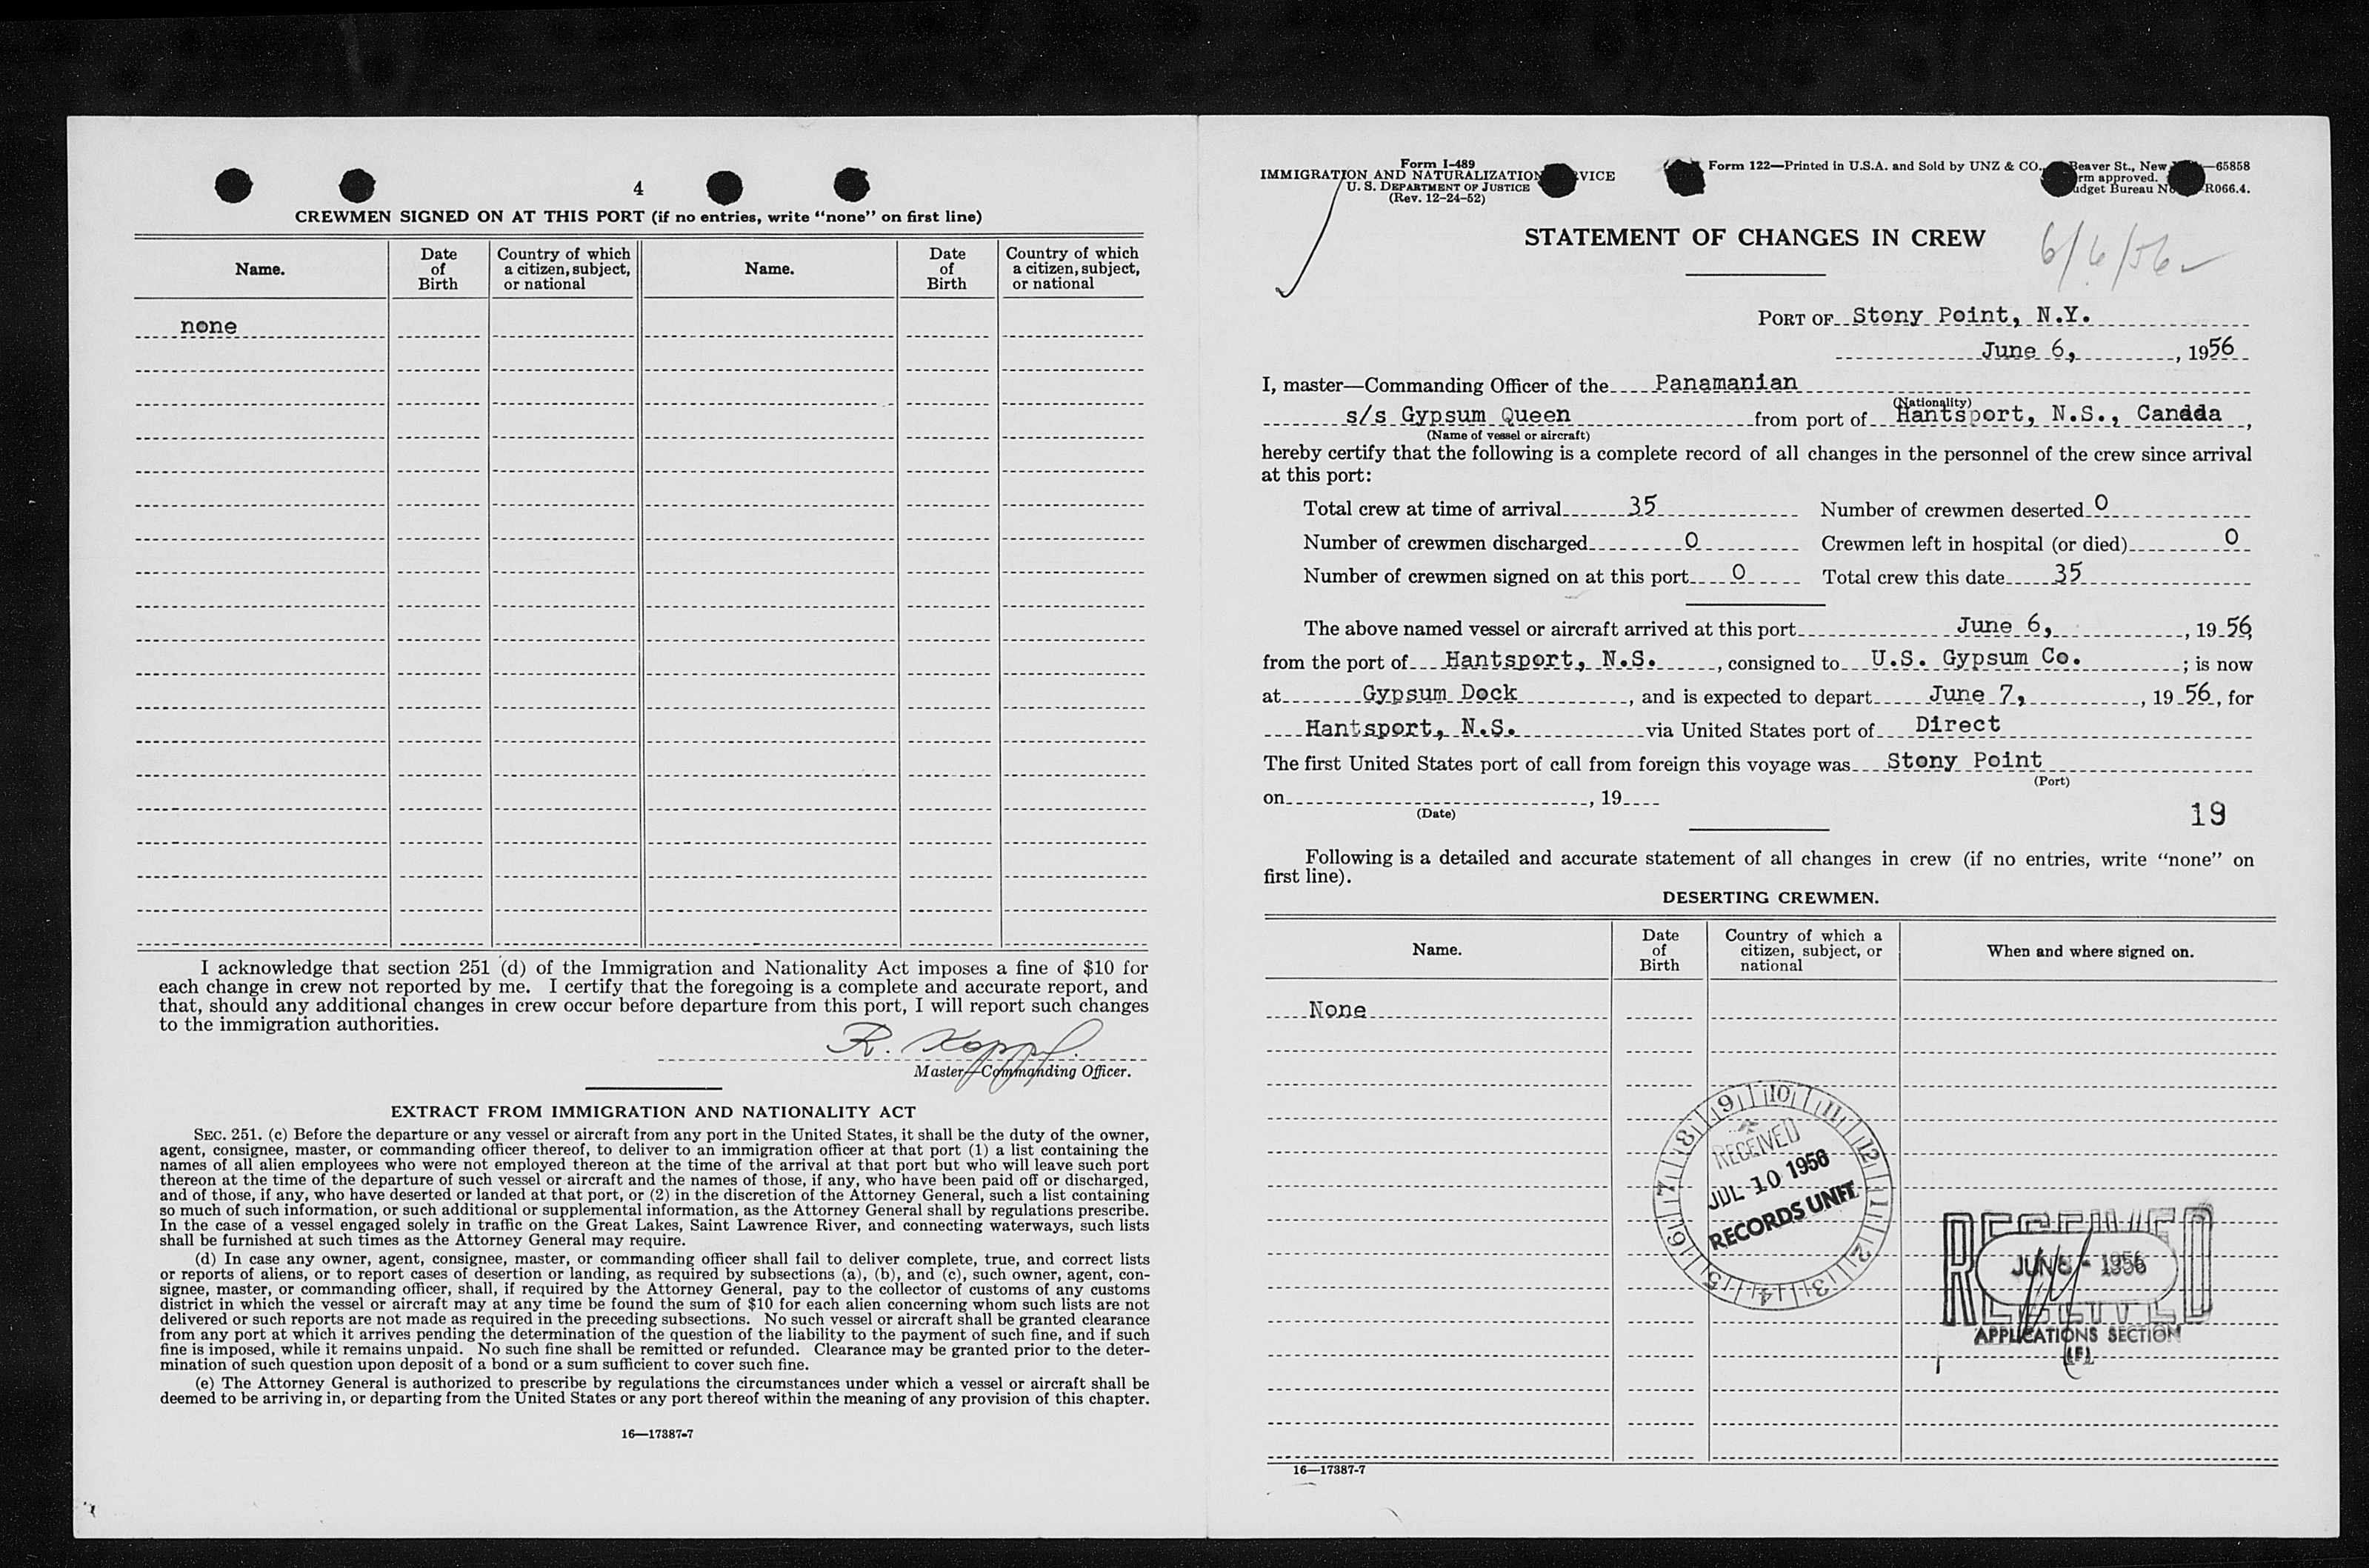 4
CREWMEN SIGNED ON AT THIS PORT (if no entries, write “none” on first line)
Name. Date of Birth Country of which a citizen, subject, or national Name. Date of Birth Country of which a citizen, subject, or national
none
I acknowledge that section 251 (d) of the Immigration and Nationality Act imposes a fine of $10 for
each change in crew not reported by me. I certify that the foregoing is a complete and accurate report, and
that, should any additional changes in crew occur before departure from this port, I will report such changes
to the immigration authorities.
R.
Master—Commanding Officer.
EXTRACT FROM IMMIGRATION AND NATIONALITY ACT
SEC. 251. (c) Before the departure or any vessel or aircraft from any port in the United States, it shall be the duty of the owner,
agent, consignee, master, or commanding officer thereof, to deliver to an immigration officer at that port (1) a list containing the
names of all alien employees who were not employed thereon at the time of the arrival at that port but who will leave such port
thereon at the time of the departure of such vessel or aircraft and the names of those, if any, who have been paid off or discharged,
and of those, if any, who have deserted or landed at that port, or (2) in the discretion of the Attorney General, such a list containing
so much of such information, or such additional or supplemental information, as the Attorney General shall by regulations prescribe.
In the case of a vessel engaged solely in traffic on the Great Lakes, Saint Lawrence River, and connecting waterways, such lists
shall be furnished at such times as the Attorney General may require.
(d) In case any owner, agent, consignee, master, or commanding officer shall fail to deliver complete, true, and correct lists
or reports of aliens, or to report cases of desertion or landing, as required by subsections (a), (b), and (c), such owner, agent, con-
signee, master, or commanding officer, shall, if required by the Attorney General, pay to the collector of customs of any customs
district in which the vessel or aircraft may at any time be found the sum of $10 for each alien concerning whom such lists are not
delivered or such reports are not made as required in the preceding subsections. No such vessel or aircraft shall be granted clearance
from any port at which it arrives pending the determination of the question of the liability to the payment of such fine, and if such
fine is imposed, while it remains unpaid. No such fine shall be remitted or refunded. Clearance may be granted prior to the deter-
mination of such question upon deposit of a bond or a sum sufficient to cover such fine.
(e) The Attorney General is authorized to prescribe by regulations the circumstances under which a vessel or aircraft shall be
deemed to be arriving in, or departing from the United States or any port thereof within the meaning of any provision of this chapter.
16—17387-7
Form I-489
IMMIGRATION AND NATURALIZATION VICE
U. S. DEPARTMENT OF JUSTICE
(Rev. 12-24-52)
Form 122—Printed in U.S.A. and Sold by UNZ & CO., Beaver St., New —65858
rm approved.
udget Bureau N R066.4.
STATEMENT OF CHANGES IN CREW
6/6/56
PORT OF Stony Point, N.Y.
June 6, , 1956
I, master—Commanding Officer of the Panamanian
(Nationality)
s/s Gypsum Queen from port of Hantsport, N.S., Canada,
(Name of vessel or aircraft)
hereby certify that the following is a complete record of all changes in the personnel of the crew since arrival
at this port:
Total crew at time of arrival 35 Number of crewmen deserted 0
Number of crewmen discharged 0 Crewmen left in hospital (or died) 0
Number of crewmen signed on at this port 0 Total crew this date 35
The above named vessel or aircraft arrived at this port June 6, , 19 56
from the port of Hantsport, N.S. , consigned to U.S. Gypsum Co. ; is now
at Gypsum Dock , and is expected to depart June 7, , 19 56, for
Hantsport, N.S. via United States port of Direct
The first United States port of call from foreign this voyage was Stony Point
(Port)
on , 19
(Date)
19
Following is a detailed and accurate statement of all changes in crew (if no entries, write “none” on
first line).
DESERTING CREWMEN.
Name. Date of Birth Country of which a citizen, subject, or national When and where signed on.
None
9 10 11 12 1 2 3 4 5 6 7 8
RECEIVED
JUL 10 1956
RECORDS UNIT
RECEIVED
JUN 8 - 1956
APPLICATIONS SECTION
(F)
16—17387-7